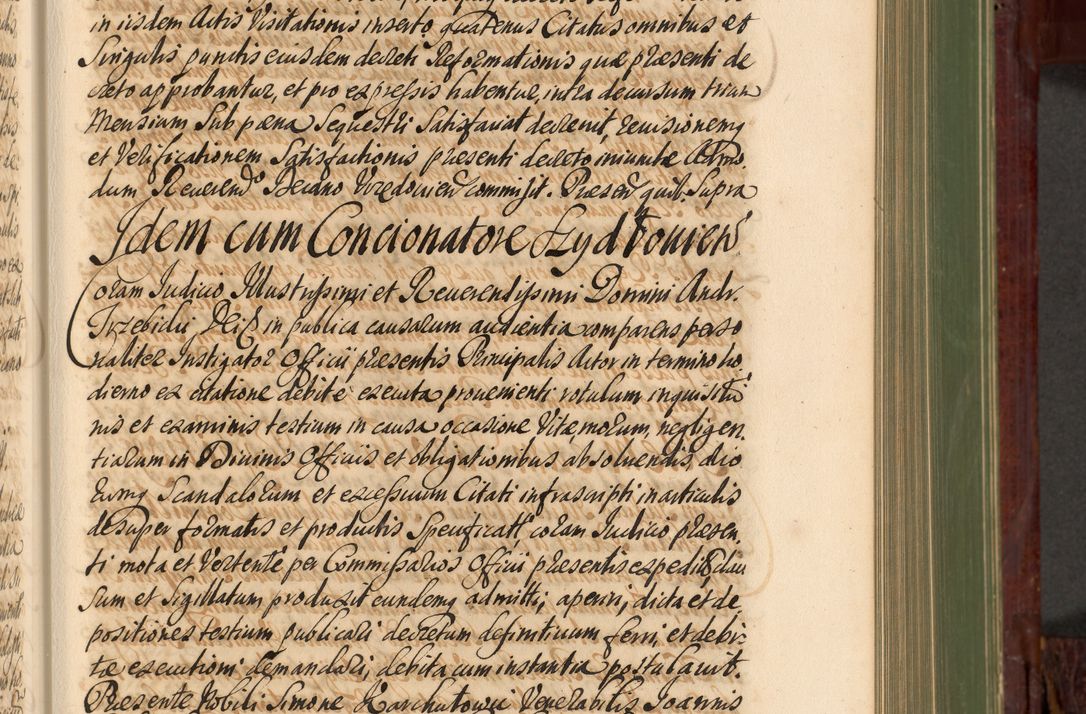 in iisdem Actis Visitationis inserto, quatenus Citatus omnibus et
Singulis punctis eiusdem decreti Reformationis quæ præsenti de
creto approbantur, et pro expressis habentur, intra decursum trium
Mensium Sub pæna Sequestri Satisfaciat decrevit, revisionemq
et Verificationem Satisfactionis præsenti decreto iniunctæ Admo
dum Reverendo Decano commisit. Præsen: quib. Supra
Idem cum Concionatore
Coram Iudicio Illustrissimi et Reverendissimi Domini Andr.
Trzebicki Dei G in publica causarum audientia comparens perso
naliter Instigator Officii præsentis Principalis Actor in termino ho
dierno ex citatione debite executa provenienti rotulum inquisitio
nis et examinis testium in causa occasione Vitæ, morum, negligen
tiarum in Divinis Officiis et obligationibus absolvendis, alio
rumq Scandalorum et excessuum Citati infrascripti in articulis
desuper formatis et productis Specificat: coram Iudicio præsen
ti mota et Vertente per Commissarios Officii præsentis expedit clau
sum et Sigillatum produxit eundemq admitti, aperiri, dicta et de
positiones testium publicari decretum definitivum ferri, et debi
tæ executioni demandari, debita cum instantia postulavit.
Præsente Nobili Simone Venerabilis Ioannis